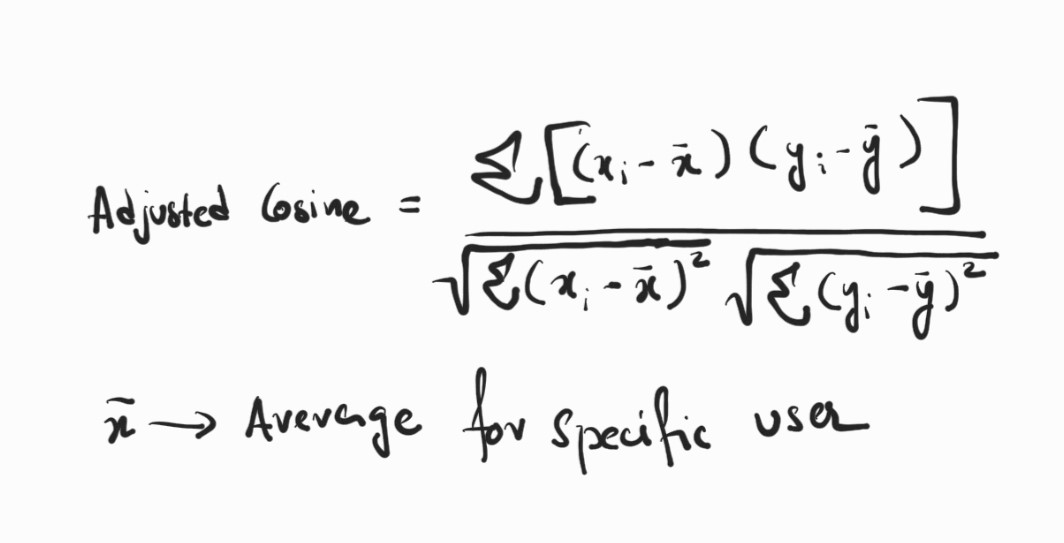 Adjusted Cosine = Σ[(xᵢ - x̄)(yᵢ - ȳ)] / √Σ(xᵢ - x̄)² √Σ(yᵢ - ȳ)²
x̄ → Average for specific user